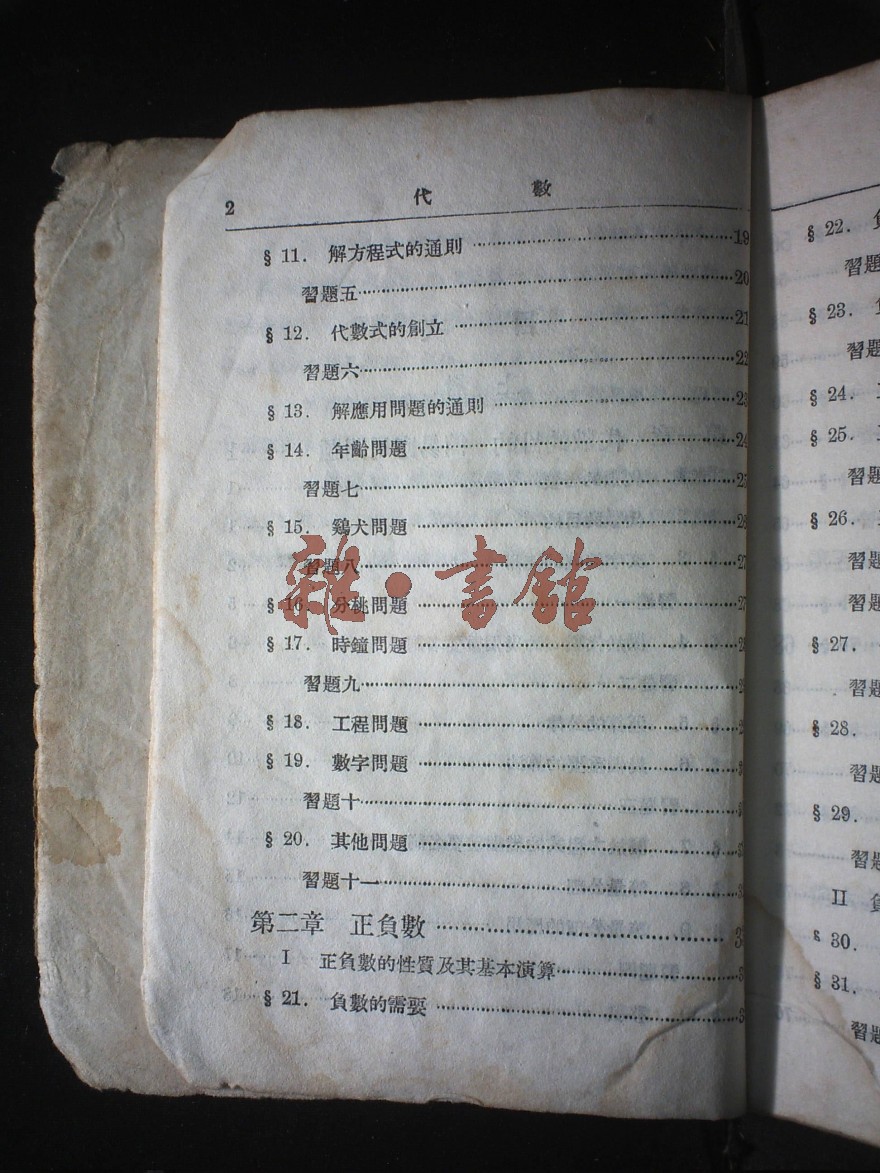 2 代數
§ 11. 解方程式的通則 19
習題五 20
§ 12. 代數式的創立 21
習題六 22
§ 13. 解應用問題的通則 23
§ 14. 年齡問題 24
習題七 25
§ 15. 鷄犬問題 26
習題八 27
§ 16. 分桃問題 27
§ 17. 時鐘問題
習題九
§ 18. 工程問題
§ 19. 數字問題
習題十
§ 20. 其他問題
習題十一
第二章 正負數
I 正負數的性質及其基本演算
§ 21. 負數的需要
雜·書館
§ 22.
習題
§ 23.
習題
§ 24.
§ 25.
習題
§ 26.
習題
習題
§ 27.
習題
§ 28.
習題
§ 29.
習題
II
§ 30.
§ 31.
習題